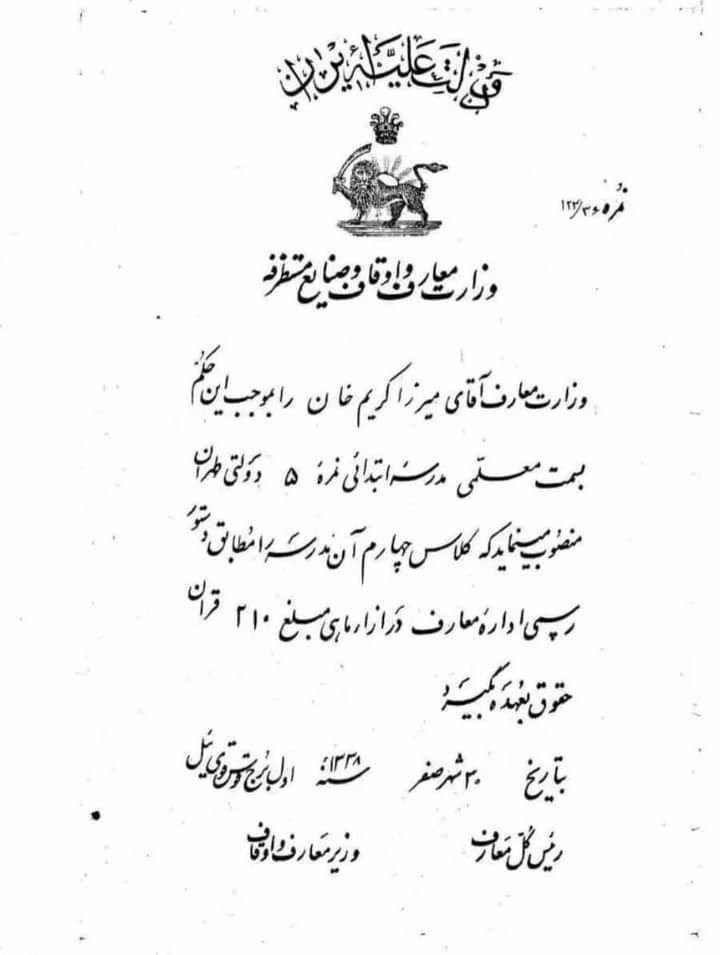 دولت علیّه ایران
نمره ۱۲۳/۳۶
وزارت معارف و اوقاف و صنایع مستظرفه
وزارت معارف آقای میرزا کریم خان را بموجب این حکم
بسمت معلّمی مدرسه ابتدائی نمرهٔ ۵ دولتی طهران
منصوب مینماید که کلاس چهارم آن مدرسه را مطابق دستور
رسمی ادارهٔ معارف در ازاء ماهی مبلغ ۲۱۰ قران
حقوق بعهده بگیرد
بتاریخ ۳۰ شهر صفر سنه ۱۳۳۸ اول برج قوس قوی ئیل
رئیس کل معارف
وزیر معارف و اوقاف